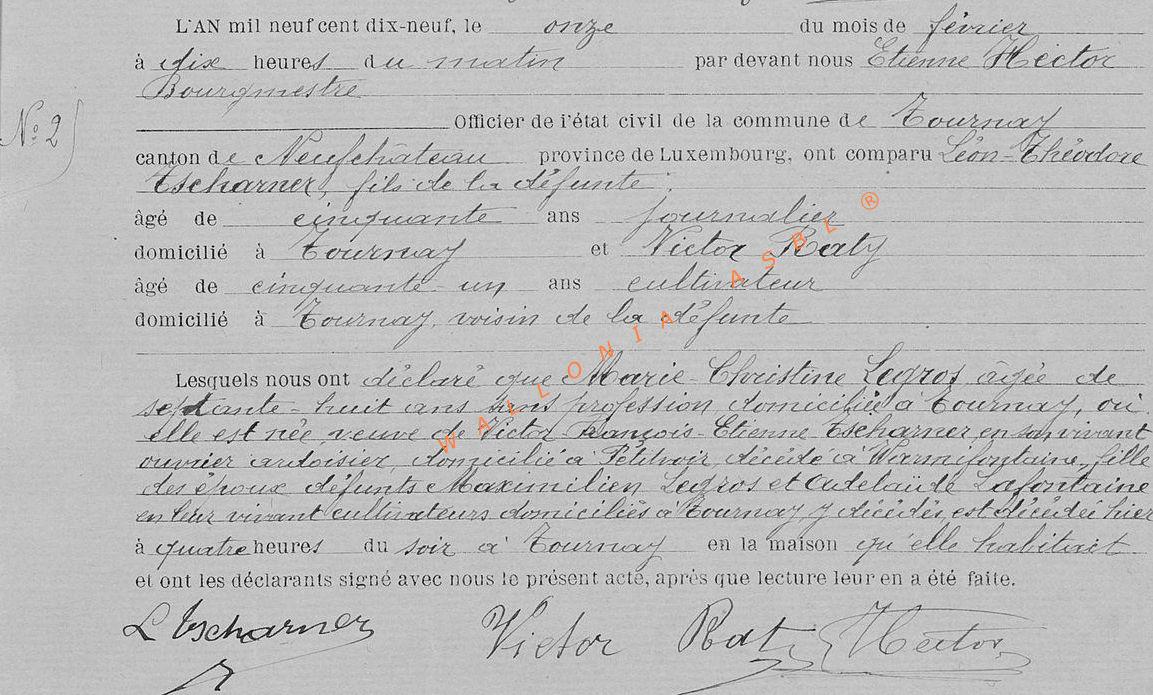 L'AN mil neuf cent dix-neuf, le onze du mois de février
à dix heures du matin par devant nous Etienne Hector
Bourgmestre
Officier de l'état civil de la commune de Tournay
N° 2
canton de Neufchâteau province de Luxembourg, ont comparu Léon-Théodore
Tscharner, fils de la défunte
âgé de cinquante ans journalier
domicilié à Tournay et Victor Raty
âgé de cinquante-un ans cultivateur
domicilié à Tournay, voisin de la défunte
Lesquels nous ont déclaré que Marie-Christine Legros âgée de
septante-huit ans sans profession domiciliée à Tournay, où
elle est née veuve de Victor François-Etienne Tscharner en son vivant
ouvrier ardoisier, domicilié à Petitvoir, décédé à Warmifontaine, fille
des époux défunts Maximilien Legros et Adelaïde Lafontaine
en leur vivant cultivateurs domiciliés à Tournay y décédés, est décédée hier
à quatre heures du soir à Tournay en la maison qu'elle habitait
et ont les déclarants signé avec nous le présent acte, après que lecture leur en a été faite.
L Tscharner Victor Raty Hector
WALLONIA ASBL ®